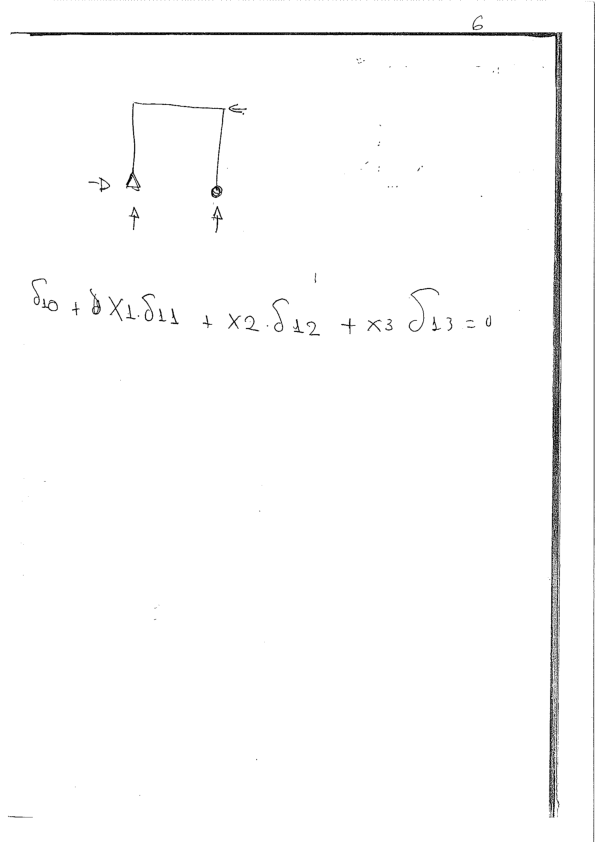 6
δ10 + X1.δ11 + X2.δ12 + X3 δ13 = 0